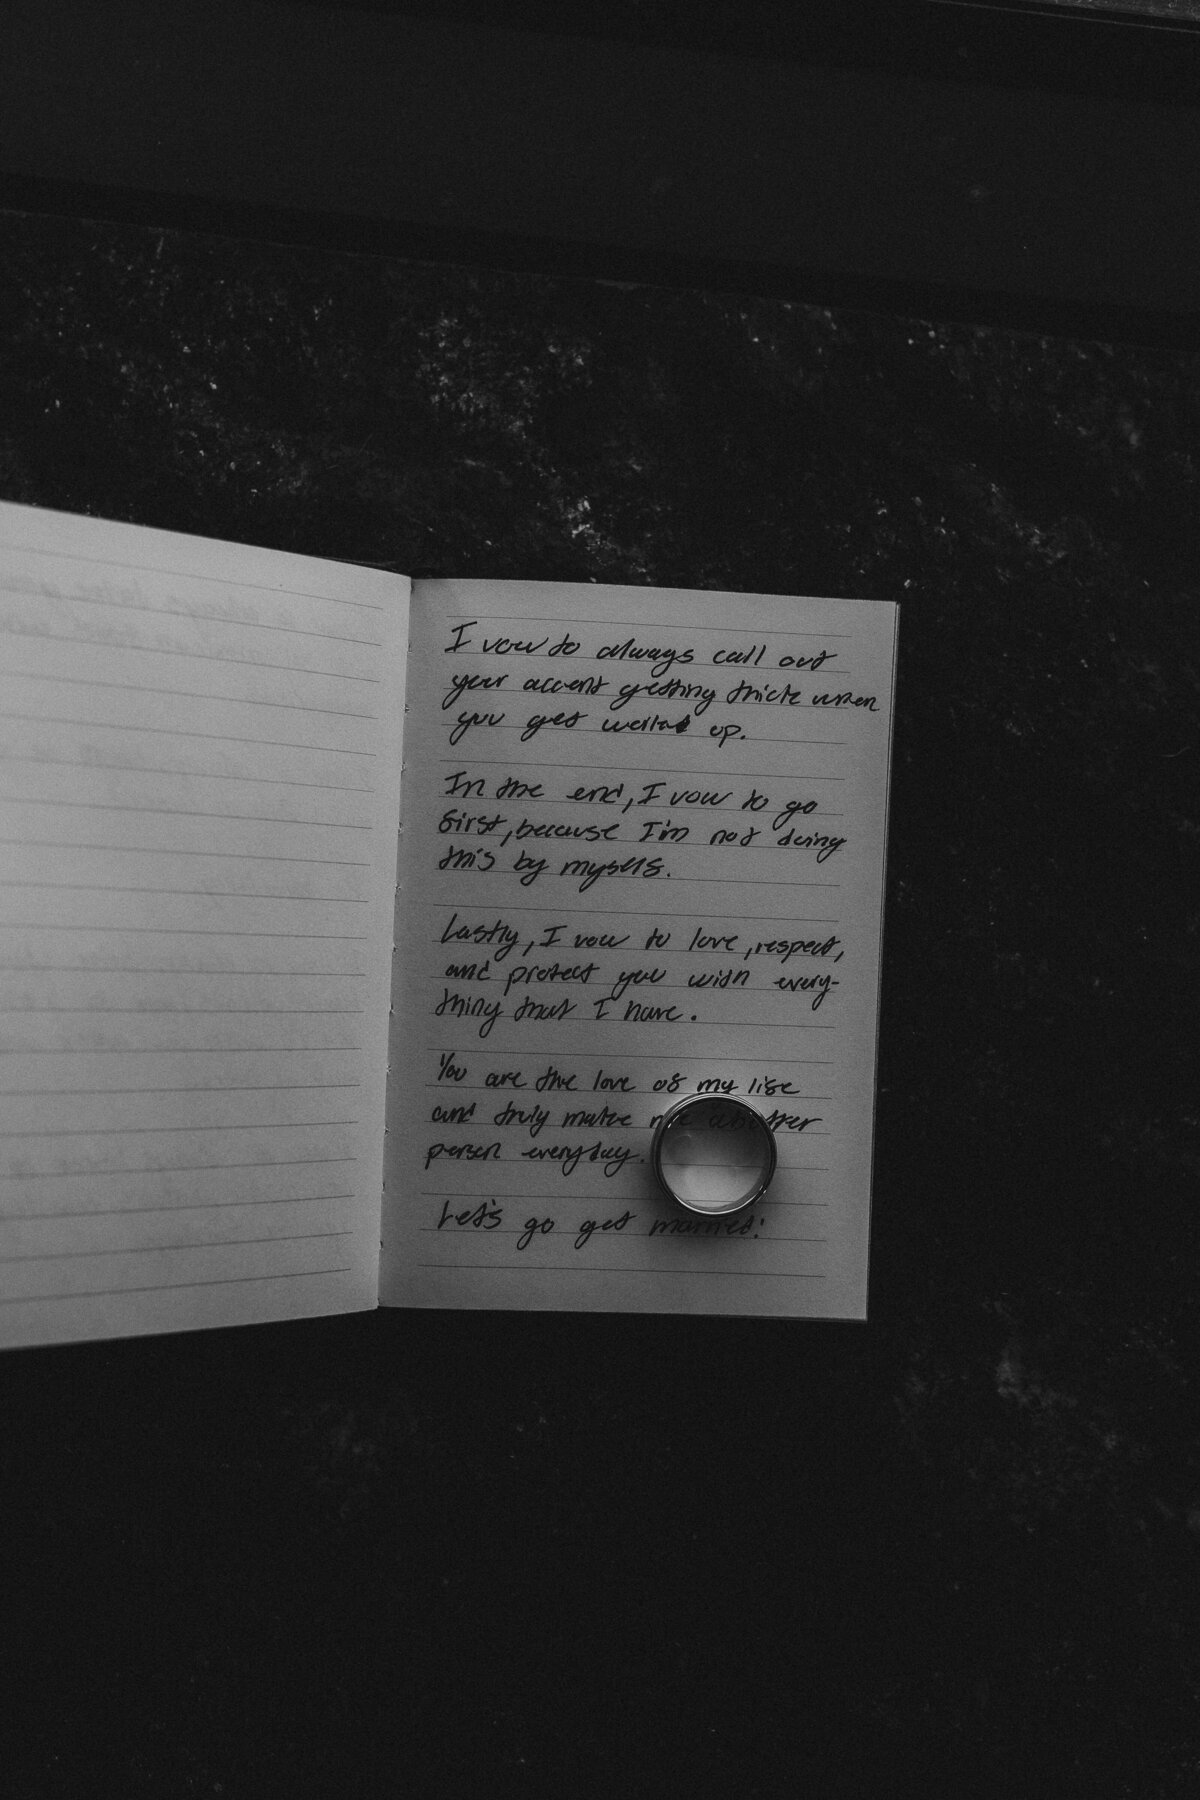 I vow to always call out
your accent getting thick when
you get worked up.
In the end, I vow to go
first, because I'm not doing
this by myself.
Lastly, I vow to love, respect,
and protect you with every-
thing that I have.
You are the love of my life
and truly make me a better
person everyday.
Let's go get married!